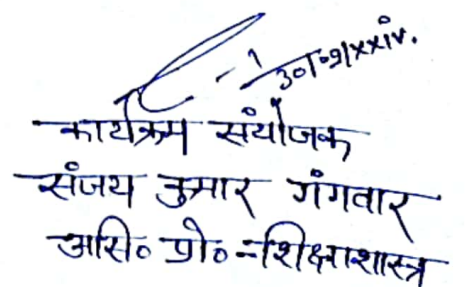 30/09/xxiv.
कार्यक्रम संयोजक
संजय कुमार गंगवार
असि० प्रो०-शिक्षाशास्त्र